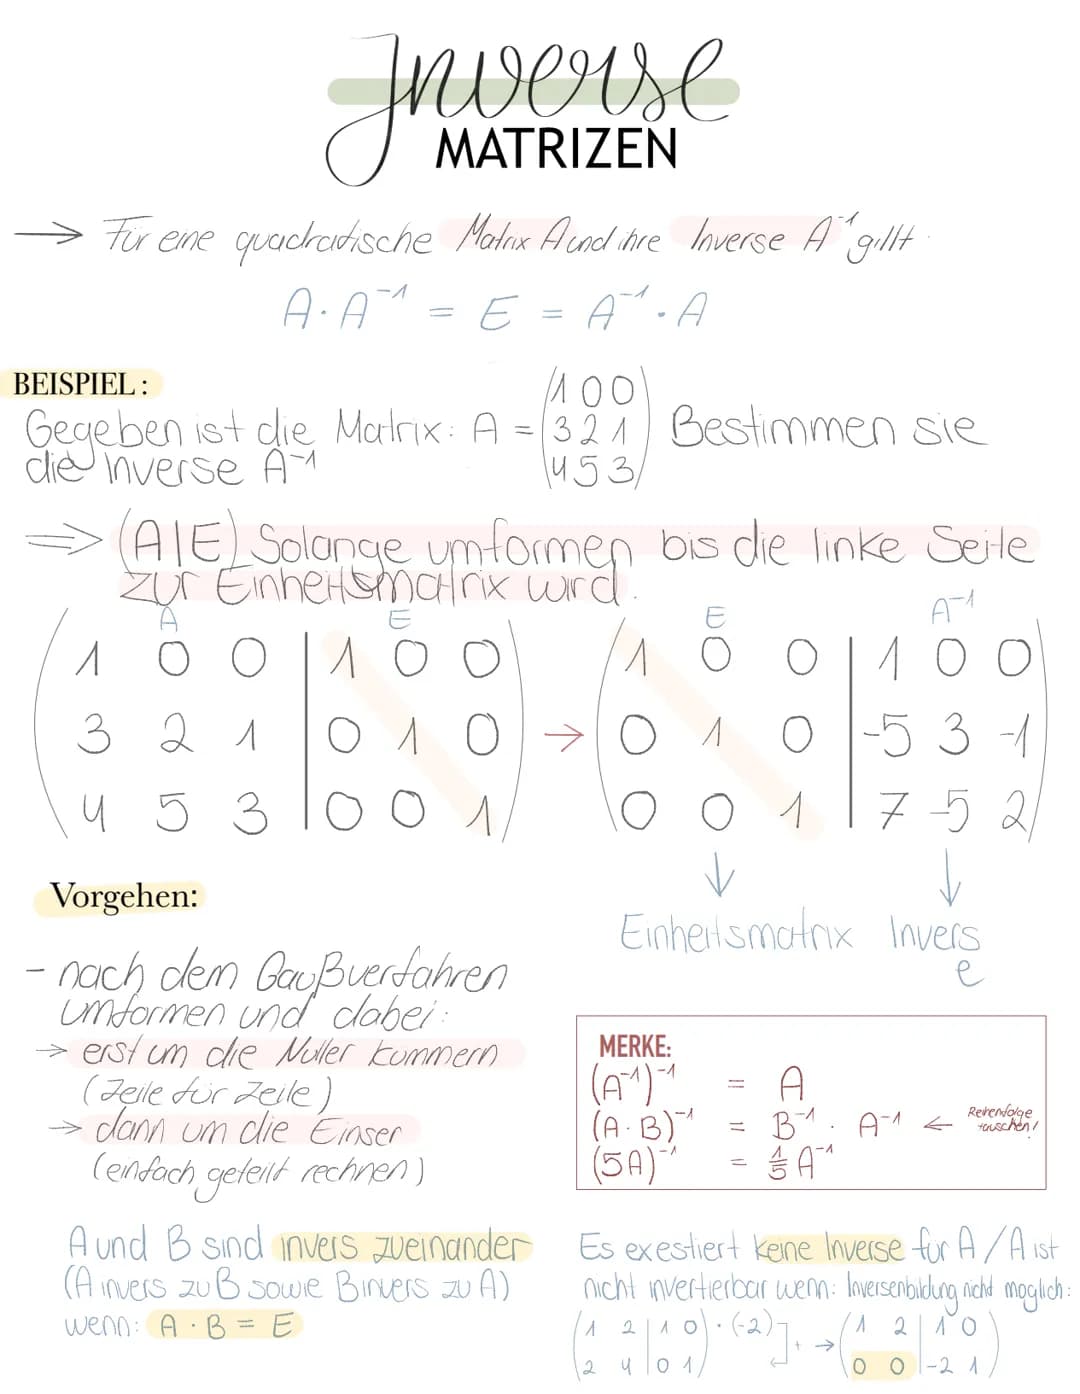 Inverse
MATRIZEN
→ Für eine quadratische Matrix A und ihre Inverse A⁻¹ gillt
A·A⁻¹ = E = A⁻¹·A
BEISPIEL:
Gegeben ist die Matrix: A = (1 0 0 / 3 2 1 / 4 5 3) Bestimmen sie
die Inverse A⁻¹
⇒ (A|E) Solange umformen bis die linke Seite
zur Einheitsmatrix wird.
A E E A⁻¹
1 0 0 | 1 0 0 1 0 0 | 1 0 0
3 2 1 | 0 1 0 → 0 1 0 | -5 3 -1
4 5 3 | 0 0 1 0 0 1 | 7 -5 2
↓ ↓
Einheitsmatrix Invers
e
Vorgehen:
- nach dem Gaußverfahren
umformen und dabei:
→ erst um die Nuller kümmern
(Zeile für Zeile)
→ dann um die Einser
(einfach geteilt rechnen)
MERKE:
(A⁻¹)⁻¹ = A
(A·B)⁻¹ = B⁻¹ · A⁻¹ ← Reihenfolge
tauschen!
(5A)⁻¹ = 1/5 A⁻¹
A und B sind invers zueinander
(A invers zu B sowie B invers zu A)
wenn: A · B = E
Es exestiert keine Inverse für A / A ist
nicht invertierbar wenn: Inversenbildung nicht möglich:
(1 2 | 1 0) ·(-2) (1 2 | 1 0)
(2 4 | 0 1) + → (0 0 | -2 1)